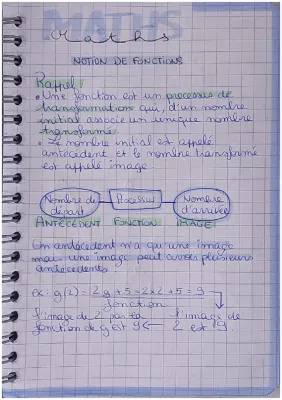 MATHS
Maths
NOTION DE FONCTIONS
Rappel:
• Une fonction est un processus de
transformation qui, d'un nombre
initial associe un unique nombre
transformé.
• Le nombre initial est appelé
antécédent et le nombre transformé
est appelé image
Nombre de départ Processus Nombre d'arrivée
ANTÉCÉDENT FONCTION IMAGE
Un antécédent n'a qu'une image
mais une image peut avoir plusieurs
antécédents
ex: g(2) = 2g + 5 = 2×2+5 = 9
fonction
l'image de 2 par la l'image de
fonction de g est 9 ← 2 est 9